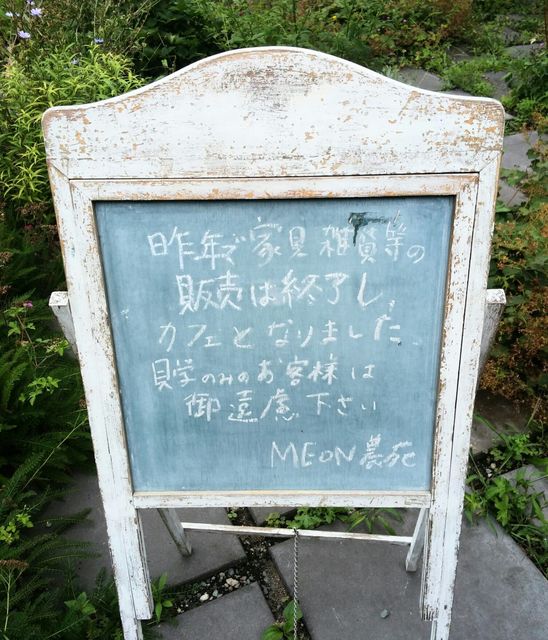 昨年で家具雑貨等の
販売は終了し
カフェとなりました
見学のみのお客様は
御遠慮下さい
MEON農苑